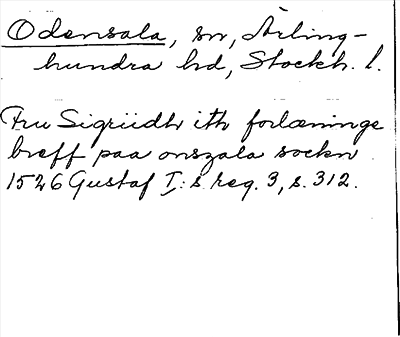 Odensala, sn, Ärling-
hundra hd, Stockh. l.
Fru Sigriidh ith forlæninge
breff paa onszala sockn
1526 Gustaf I:s reg. 3, s. 312.